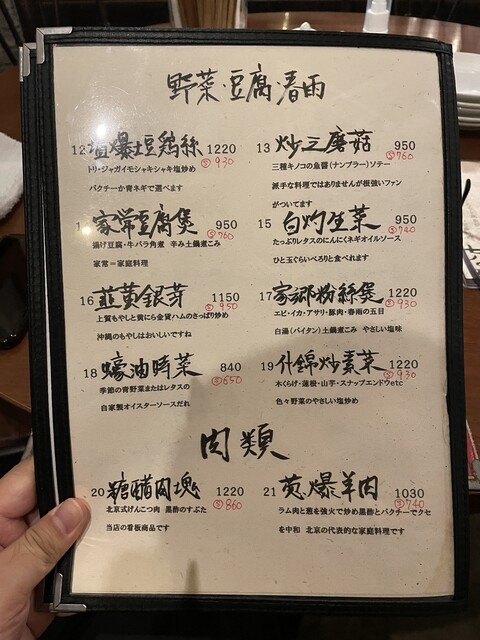 野菜・豆腐・春雨
12 塩爆土豆鶏絲 1220
S930
トリ・ジャガイモシャキシャキ塩炒め
パクチーか青ネギで選べます
13 炒三蘑菇 950
S760
三種キノコの魚醤(ナンプラー)ソテー
派手な料理ではありませんが根強いファン
がついてます
家常豆腐煲 950
S760
揚げ豆腐・牛バラ角煮 辛み土鍋煮こみ
家常=家庭料理
15 白灼生菜 950
S740
たっぷりレタスのにんにくネギオイルソース
ひと玉ぐらいぺろりと食べれます
16 韮黄銀芽 1150
S950
上質もやしと黄にら金貨ハムのさっぱり炒め
沖縄のもやしはおいしいですね
17 家郷粉絲煲 1220
S930
エビ・イカ・アサリ・豚肉・春雨の五目
白湯(パイタン)土鍋煮こみ やさしい塩味
18 蠔油時菜 840
S650
季節の青野菜またはレタスの
自家製オイスターソースだれ
19 什錦炒素菜 1220
S930
木くらげ・蓮根・山芋・スナップエンドウetc
色々野菜のやさしい塩炒め
肉類
20 糖醋肉塊 1220
S860
北京式げんこつ肉 黒酢のすぶた
当店の看板商品です
21 葱爆羊肉 1030
S740
ラム肉と葱を強火で炒め黒酢とパクチーでクセ
を中和 北京の代表的な家庭料理です